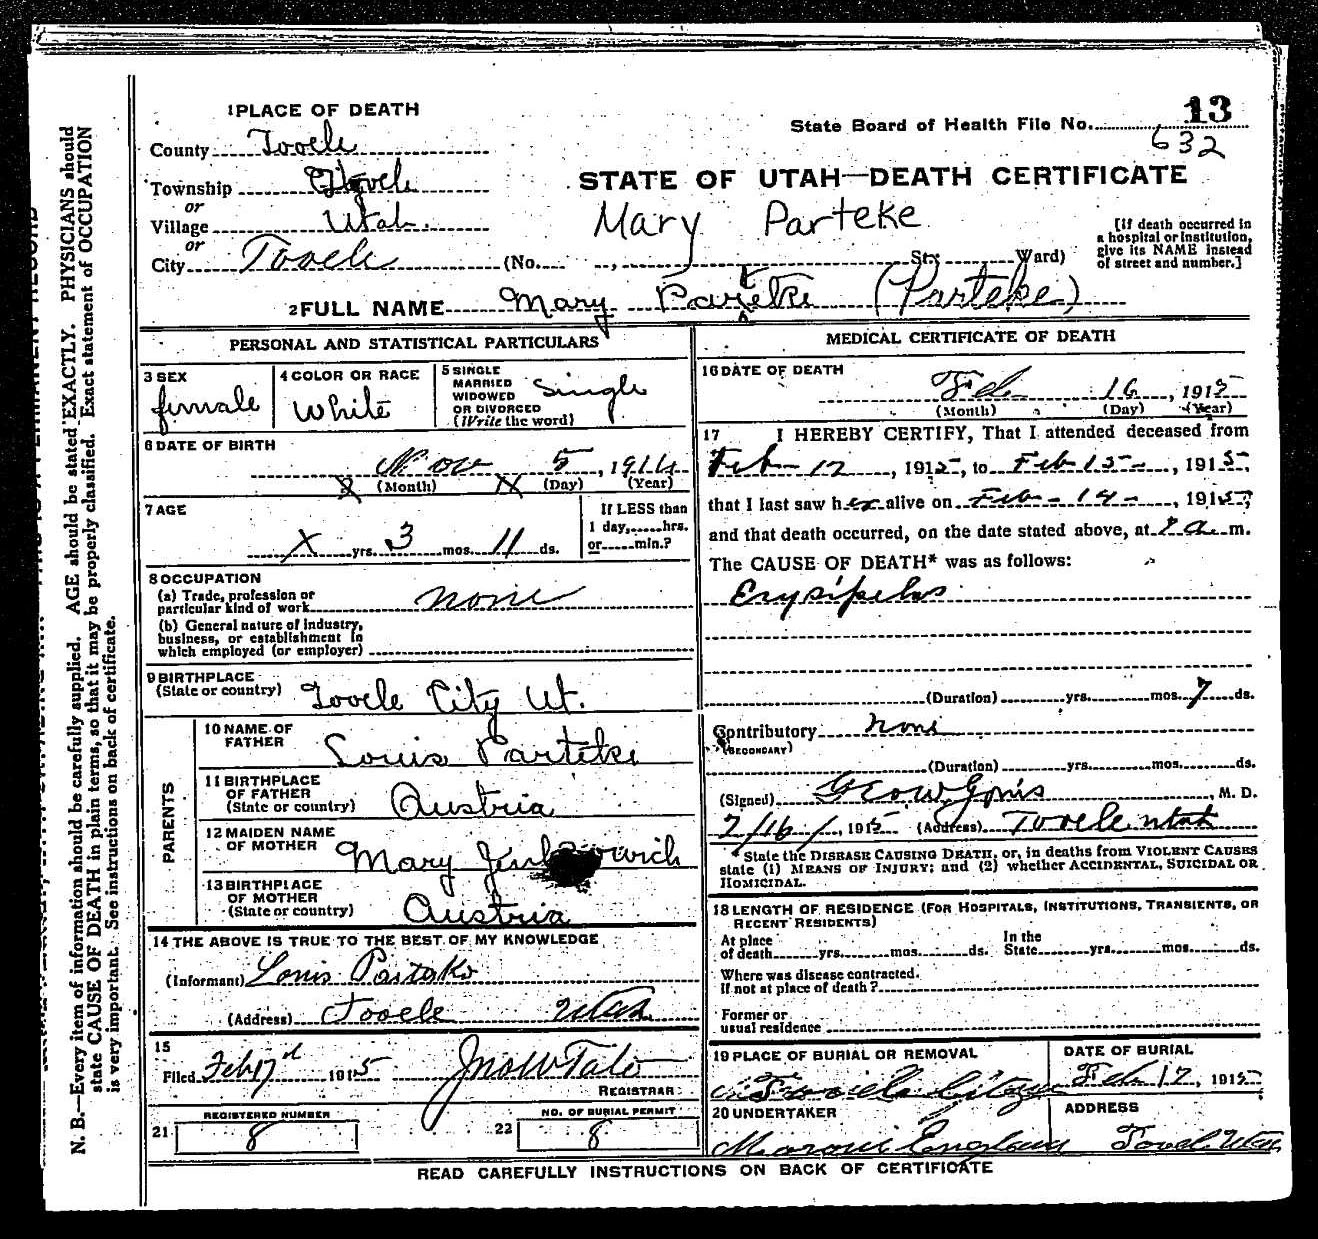 1 PLACE OF DEATH
County Tooele
Township Tooele
or
Village Utah.
or
City Tooele (No. , St; Ward)
13
State Board of Health File No. 632
STATE OF UTAH—DEATH CERTIFICATE
Mary Parteke
[If death occurred in
a hospital or institution,
give its NAME instead
of street and number.]
2 FULL NAME Mary (Parteke)
PERSONAL AND STATISTICAL PARTICULARS
3 SEX
female
4 COLOR OR RACE
White
5 SINGLE
MARRIED
WIDOWED
OR DIVORCED
(Write the word)
Single
6 DATE OF BIRTH
Nov 5, 1914
(Month) (Day) (Year)
7 AGE
X yrs. 3 mos. 11 ds.
If LESS than
1 day, hrs.
or min.?
8 OCCUPATION
(a) Trade, profession or
particular kind of work none
(b) General nature of industry,
business, or establishment in
which employed (or employer)
9 BIRTHPLACE
(State or country) Tooele City Ut.
PARENTS
10 NAME OF
FATHER Louis Parteke
11 BIRTHPLACE
OF FATHER
(State or country) Austria
12 MAIDEN NAME
OF MOTHER Mary
13 BIRTHPLACE
OF MOTHER
(State or country) Austria
14 THE ABOVE IS TRUE TO THE BEST OF MY KNOWLEDGE
(Informant) Louis
(Address) Tooele Utah
15
Filed Feb 17th 1915
REGISTRAR
REGISTERED NUMBER
21 8
NO. OF BURIAL PERMIT
22 8
MEDICAL CERTIFICATE OF DEATH
16 DATE OF DEATH
Feb 16, 1915
(Month) (Day) (Year)
17 I HEREBY CERTIFY, That I attended deceased from
Feb - 12, 1915, to Feb 15, 1915,
that I last saw her alive on Feb - 14 -, 1915,
and that death occurred, on the date stated above, at 2 a. m.
The CAUSE OF DEATH* was as follows:
Erysipelas
(Duration) yrs. mos. 7 ds.
Contributory none
(SECONDARY)
(Duration) yrs. mos. ds.
(Signed) Geo W , M. D.
2/16/, 1915 (Address) Tooele Utah
*State the DISEASE CAUSING DEATH, or, in deaths from VIOLENT CAUSES
state (1) MEANS OF INJURY; and (2) whether ACCIDENTAL, SUICIDAL OR
HOMICIDAL.
18 LENGTH OF RESIDENCE (FOR HOSPITALS, INSTITUTIONS, TRANSIENTS, OR
RECENT RESIDENTS)
At place
of death yrs. mos. ds.
In the
State yrs. mos. ds.
Where was disease contracted.
If not at place of death?
Former or
usual residence
19 PLACE OF BURIAL OR REMOVAL
Tooele City
DATE OF BURIAL
Feb 17, 1915
20 UNDERTAKER
Maroni England
ADDRESS
Tooel Utah
READ CAREFULLY INSTRUCTIONS ON BACK OF CERTIFICATE
N. B.—Every item of information should be carefully supplied. AGE should be stated EXACTLY. PHYSICIANS should
state CAUSE OF DEATH in plain terms, so that it may be properly classified. Exact statement of OCCUPATION
is very important. See instructions on back of certificate.